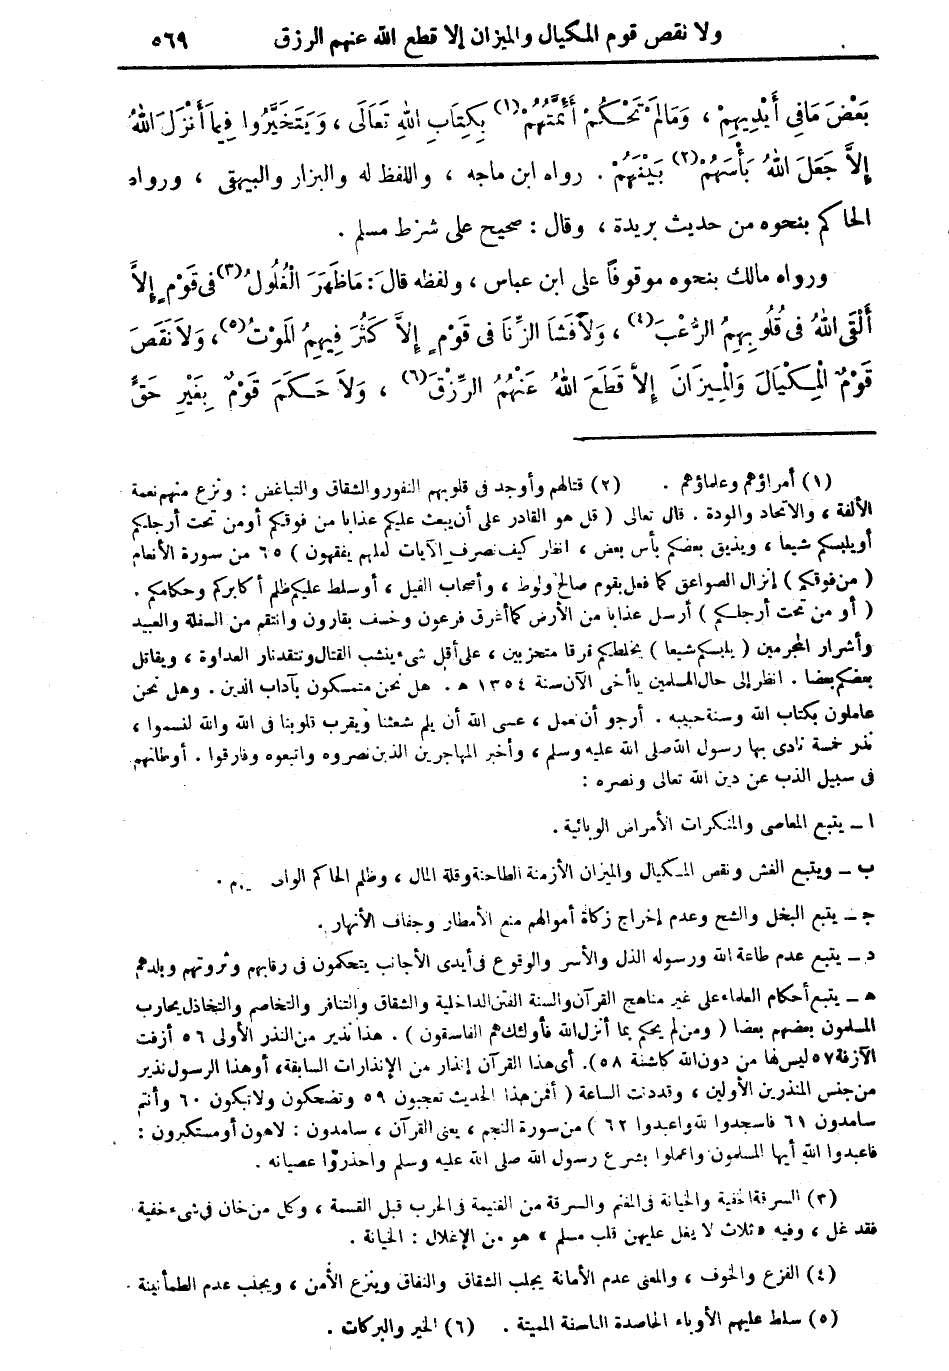 ولا نقص قوم المكيال والميزان إلا قطع الله عنهم الرزق ٥٦٩
بَعْضَ مَا فِى أَيْدِيهِمْ ، وَمَالَمْ تَحْكُمْ أَئِمَّتُهُمْ (١) بِكِتَابِ اللهِ تَعَالَى ، وَيَتَخَيَّرُوا فِيمَا أَنْزَلَ اللهُ
إِلاَّ جَعَلَ اللهُ بَأْسَهُمْ (٢) بَيْنَهُمْ . رواه ابن ماجه ، واللفظ له والبزار والبيهقى ، ورواه
الحاكم بنحوه من حديث بريدة ، وقال : صحيح على شرط مسلم .
ورواه مالك بنحوه موقوفاً على ابن عباس ، ولفظه قالَ : مَاظَهَرَ الْغُلُولُ (٣) فى قَوْمٍ إِلاَّ
أَلْقَى اللهُ فى قُلُوبِهِمُ الرُّعْبَ (٤) ، وَلاَ فَشَا الزِّنَا فى قَوْمٍ إِلاَّ كَثُرَ فِيهِمُ المَوْتُ (٥) ، وَلاَ نَقَصَ
قَوْمٌ الْمِكْيَالَ وَالْمِيزَانَ إِلاَّ قَطَعَ اللهُ عَنْهُمُ الرِّزْقَ (٦) ، وَلاَ حَكَمَ قَوْمٌ بِغَيْرِ حَقٍّ
(١) أمراؤهم وعلماؤهم . (٢) قتالهم وأوجد فى قلوبهم النفور والشقاق والتباغض : ونزع منهم نعمة
الألفة ، والاتحاد والودة . قال تعالى ( قل هو القادر على أن يبعث عليكم عذابا من فوقكم أو من تحت أرجلكم
أو يلبسكم شيعا ، ويذيق بعضكم بأس بعض ، انظر كيف نصرف الآيات لعلهم يفقهون ) ٦٥ من سورة الأنعام
( من فوقكم ) إنزال الصواعق كما فعل بقوم صالح ولوط ، وأصحاب الفيل ، أو سلط عليكم ظلم أكابركم وحكامكم .
( أو من تحت أرجلكم ) أرسل عذابا من الأرض كما أغرق فرعون وخسف بقارون وانتقم من السفلة والعبيد
وأشرار المجرمين ( يلبسكم شيعا ) يخلطكم فرقا متحزبين ، على أقل شىء ينشب القتال وتتقد نار العداوة ، ويقاتل
بعضكم بعضا . انظر إلى حال المسلمين ياأخى الآن سنة ١٣٥٤ هـ . هل نحن متمسكون بآداب الدين . وهل نحن
عاملون بكتاب الله وسنة حبيبه . أرجو أن نعمل ، عسى الله أن يلم شعثنا ويقرب قلوبنا فى الله والله لنسموا ،
نذر خمسة نادى بها رسول الله صلى الله عليه وسلم ، وأخبر المهاجرين الذين نصروه واتبعوه وفارقوا . أوطانهم
فى سبيل الذب عن دين الله تعالى ونصره :
ا ــ يتبع المعاصى والمنكرات الأمراض الوبائية .
ب ــ ويتبع الغش ونقص المكيال والميزان الأزمنة الطاحنة وقلة المال ، وظلم الحاكم
جـ ــ يتبع البخل والشح وعدم إخراج زكاة أموالهم منع الأمطار وجفاف الأنهار .
د ــ يتبع عدم طاعة الله ورسوله الذل والأسر والوقوع فى أيدى الأجانب يتحكمون فى رقابهم وثروتهم وبلدهم
هـ ــ يتبع أحكام العلماء على غير مناهج القرآن والسنة الفتن الداخلية والشقاق والتنافر والتخاصم والتخاذل يحارب
المسلمون بعضهم بعضا ( ومن لم يحكم بما أنزل الله فأولئك هم الفاسقون ) . هذا نذير من النذر الأولى ٥٦ أزفت
الآزفة ٥٧ ليس لها من دون الله كاشفة ٥٨ ) . أى هذا القرآن إنذار من الإنذارات السابقة ، أو هذا الرسول نذير
من جنس المنذرين الأولين ، وقد دنت الساعة ( أفمن هذا الحديث تعجبون ٥٩ وتضحكون ولا تبكون ٦٠ وأنتم
سامدون ٦١ فاسجدوا لله واعبدوا ٦٢ ) من سورة النجم ، يعنى القرآن ، سامدون : لاهون أو مستكبرون :
فاعبدوا الله أيها المسلمون واعملوا بشرع رسول الله صلى الله عليه وسلم واحذروا عصيانه .
(٣) السرقة الخفية والخيانة فى المغنم والسرقة من الغنيمة فى الحرب قبل القسمة ، وكل من خان فى شىء خفية
فقد غل ، وفيه « ثلاث لا يغل عليهن قلب مسلم » هو من الإغلال : الخيانة .
(٤) الفزع والخوف ، والمعنى عدم الأمانة يجلب الشقاق والنفاق وينزع الأمن ، ويجلب عدم الطمأنينة .
(٥) سلط عليهم الأوباء الحاصدة الناسفة المميتة . (٦) الخير والبركات .